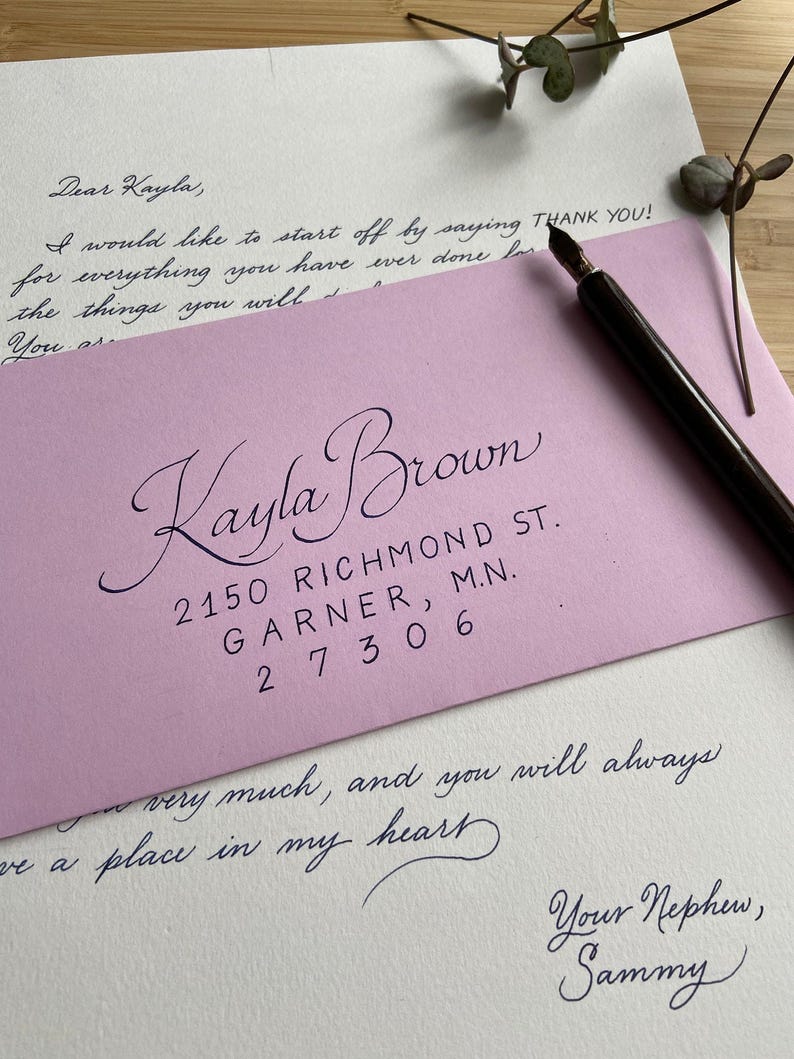 Dear Kayla,
I would like to start off by saying THANK YOU!
for everything you have ever done for
the things you will
You are
Kayla Brown
2150 RICHMOND ST.
GARNER, M.N.
27306
very much, and you will always
a place in my heart
Your Nephew,
Sammy